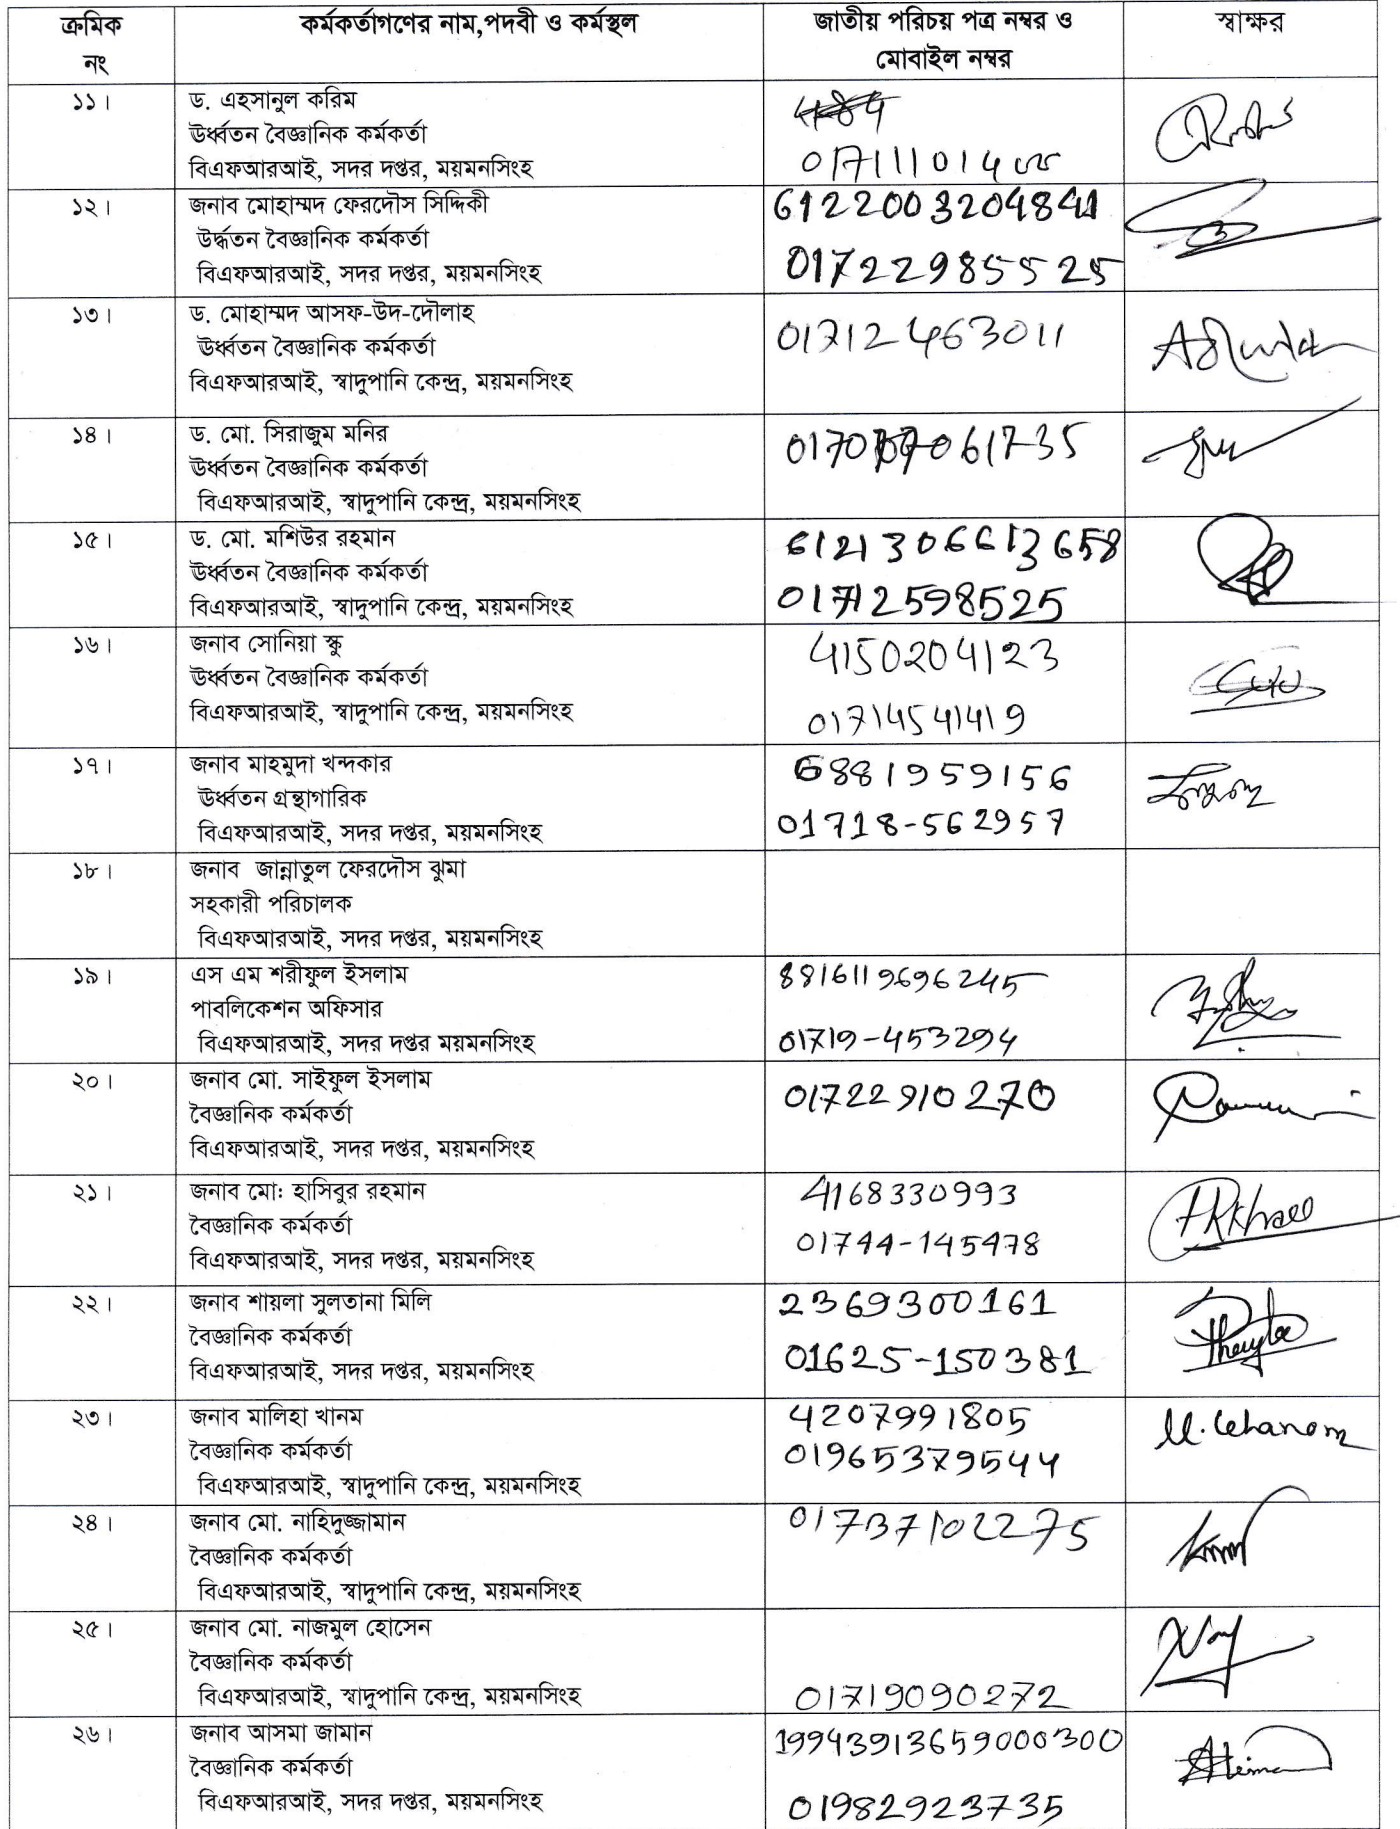 ক্রমিক নং
কর্মকর্তাগণের নাম,পদবী ও কর্মস্থল
জাতীয় পরিচয় পত্র নম্বর ও মোবাইল নম্বর
স্বাক্ষর
১১।
ড. এহসানুল করিম
ঊর্ধ্বতন বৈজ্ঞানিক কর্মকর্তা
বিএফআরআই, সদর দপ্তর, ময়মনসিংহ
১২।
জনাব মোহাম্মদ ফেরদৌস সিদ্দিকী
উর্দ্ধতন বৈজ্ঞানিক কর্মকর্তা
বিএফআরআই, সদর দপ্তর, ময়মনসিংহ
01722985525
১৩।
ড. মোহাম্মদ আসফ-উদ-দৌলাহ
ঊর্ধ্বতন বৈজ্ঞানিক কর্মকর্তা
বিএফআরআই, স্বাদুপানি কেন্দ্র, ময়মনসিংহ
01712463011
১৪।
ড. মো. সিরাজুম মনির
ঊর্ধ্বতন বৈজ্ঞানিক কর্মকর্তা
বিএফআরআই, স্বাদুপানি কেন্দ্র, ময়মনসিংহ
১৫।
ড. মো. মশিউর রহমান
ঊর্ধ্বতন বৈজ্ঞানিক কর্মকর্তা
বিএফআরআই, স্বাদুপানি কেন্দ্র, ময়মনসিংহ
6121306613658
01712598525
১৬।
জনাব সোনিয়া স্কু
ঊর্ধ্বতন বৈজ্ঞানিক কর্মকর্তা
বিএফআরআই, স্বাদুপানি কেন্দ্র, ময়মনসিংহ
4150204123
01714541419
১৭।
জনাব মাহমুদা খন্দকার
ঊর্ধ্বতন গ্রন্থাগারিক
বিএফআরআই, সদর দপ্তর, ময়মনসিংহ
6881959156
01718-562957
১৮।
জনাব জান্নাতুল ফেরদৌস ঝুমা
সহকারী পরিচালক
বিএফআরআই, সদর দপ্তর, ময়মনসিংহ
১৯।
এস এম শরীফুল ইসলাম
পাবলিকেশন অফিসার
বিএফআরআই, সদর দপ্তর ময়মনসিংহ
8816119696245
01719-453294
২০।
জনাব মো. সাইফুল ইসলাম
বৈজ্ঞানিক কর্মকর্তা
বিএফআরআই, সদর দপ্তর, ময়মনসিংহ
01722910270
২১।
জনাব মোঃ হাসিবুর রহমান
বৈজ্ঞানিক কর্মকর্তা
বিএফআরআই, সদর দপ্তর, ময়মনসিংহ
4168330993
01744-145478
২২।
জনাব শায়লা সুলতানা মিলি
বৈজ্ঞানিক কর্মকর্তা
বিএফআরআই, সদর দপ্তর, ময়মনসিংহ
2369300161
01625-150381
২৩।
জনাব মালিহা খানম
বৈজ্ঞানিক কর্মকর্তা
বিএফআরআই, স্বাদুপানি কেন্দ্র, ময়মনসিংহ
4207991805
01965379544
M. Khanom
২৪।
জনাব মো. নাহিদুজ্জামান
বৈজ্ঞানিক কর্মকর্তা
বিএফআরআই, স্বাদুপানি কেন্দ্র, ময়মনসিংহ
01737102275
২৫।
জনাব মো. নাজমুল হোসেন
বৈজ্ঞানিক কর্মকর্তা
বিএফআরআই, স্বাদুপানি কেন্দ্র, ময়মনসিংহ
01719090272
২৬।
জনাব আসমা জামান
বৈজ্ঞানিক কর্মকর্তা
বিএফআরআই, সদর দপ্তর, ময়মনসিংহ
19943913659000300
01982923735